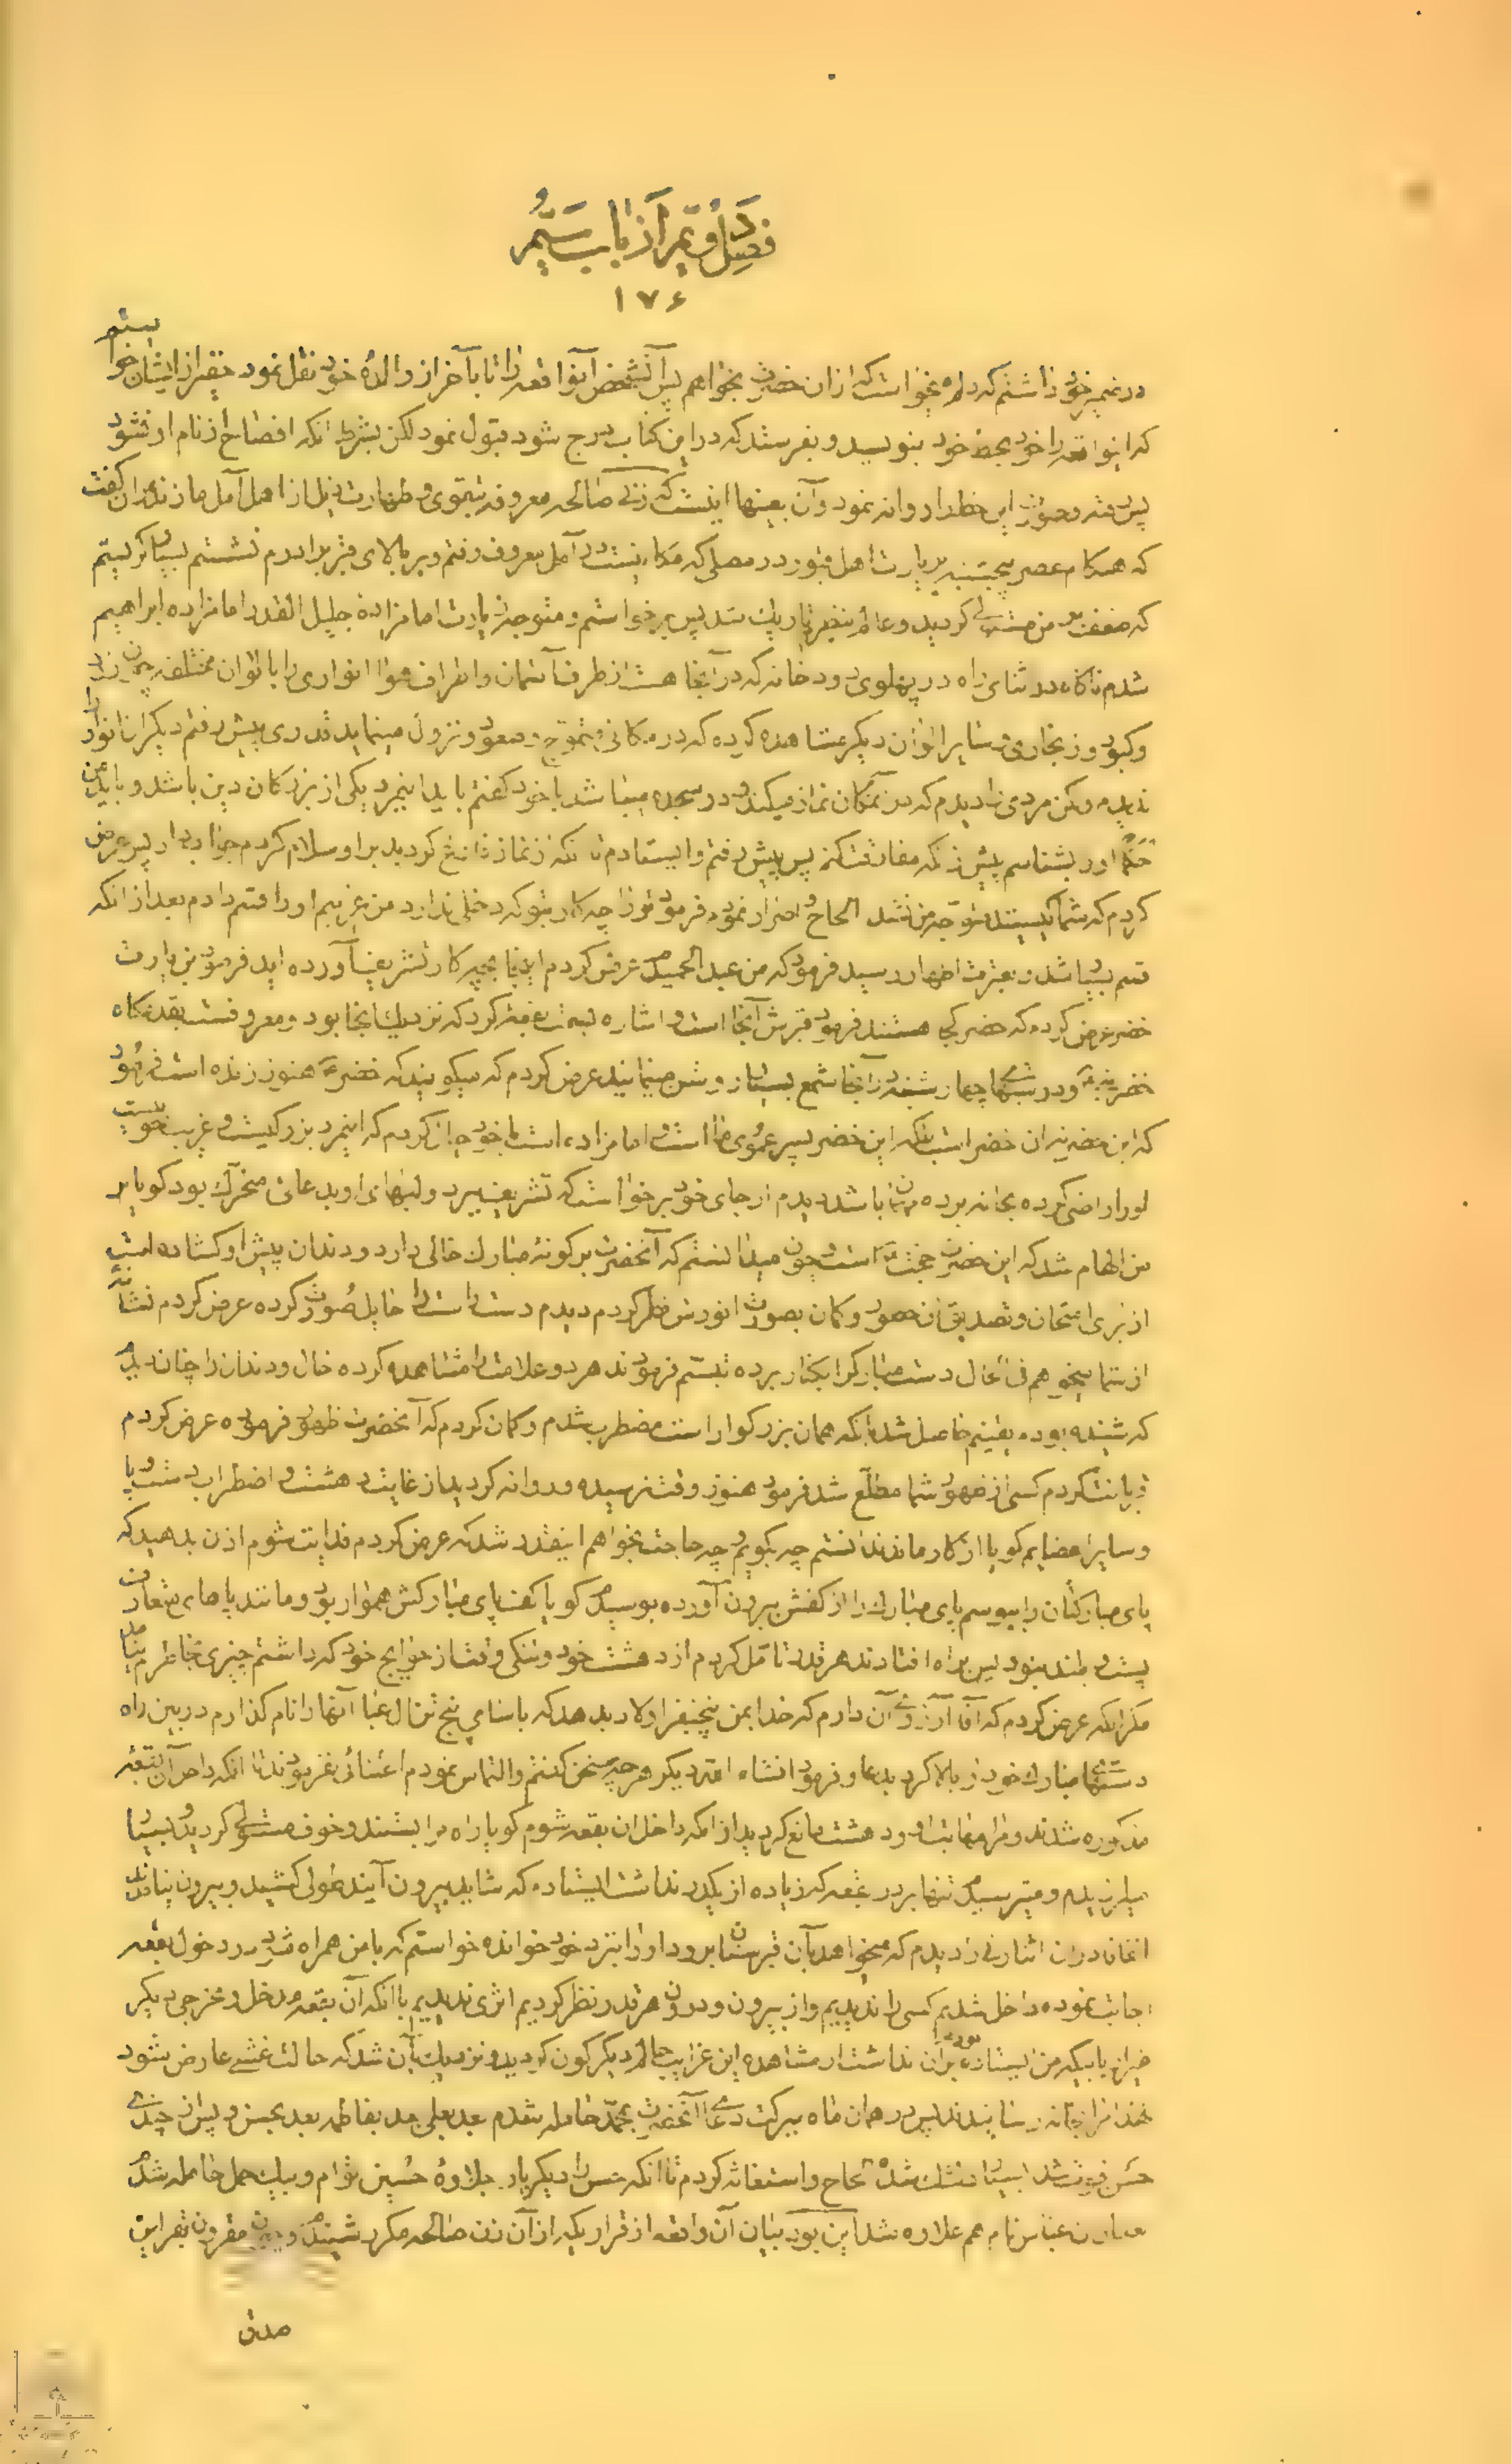 فصل دویم از باب سیم
۱۷۶
در ضمیر خود داشتم که دلم میخواست که از آن حضرت بخواهم پس آنشخص آنواقعه را تا بآخر از والدهٔ خود نقل نمود حقیر از ایشان خواستم
که اینواقعه را خود بخط خود بنویسد و بفرستد که در این کتاب درج شود قبول نمود لکن بشرط آنکه افصاح از نام او نشود
پس رفته و صورت این خط را روانه نمود و آن بعینها اینست که زنی صالحه معروفه بتقوی و طهارت ذیل از اهل آمل مازندران گفت
که هنگام عصر پنجشنبه بزیارت اهل قبور در مصلی که مکانیست در آمل معروف رفتم و بر بالای قبر برادرم نشستم بسیار گریستم
که ضعف بر من مستولی گردید و عالم بنظرم تاریک شد پس برخواستم و متوجه زیارت امامزادهٔ جلیل القدر امامزاده ابراهیم
شدم ناگاه در اثنای راه در پهلوی رودخانه که در آنجا هست از طرف آسمان و اطراف هوا انواری را بالوان مختلفه چون زرد
و کبود و زنجاری و سایر الوان دیگر مشاهده کرده که در مکانی متموج و صعود و نزول مینماید قدری پیش رفتم دیگر آن انوار را
ندیدم و لکن مردی را دیدم که در آنمکان نماز میکند و در سجده میباشد با خود گفتم باید اینمرد یکی از بزرگان دین باشد و باید من
حکماً او را بشناسم پیش از آنکه مفارقت کنم پس پیش رفتم و ایستادم تا آنکه از نماز فارغ گردید بر او سلام کردم جواب داد پس عرض
کردم که شما کیستید متوجه من نشد الحاح و اصرار نمودم فرمود تو را چه کار بتو که دخلی ندارد من غریبم او را قسم دادم بعد از آنکه
قسم بسیار شد و بعترت اطهار رسید فرمود که من عبد الحمیدم عرض کردم اینجا بچه کار تشریف آورده اید فرمود بزیارت
خضر عرض کردم که خضر کجا هستند فرمود قبرش آنجا است و اشاره بسمت بقعهٔ کرد که نزدیک آنجا بود و معروفست بقدمگاه
خضر نبی و در شبهای چهارشنبه در آنجا شمع بسیار روشن مینمایند عرض کردم که میگویند که خضر هنوز زنده است فرمود
که این خضر نه آن خضر است بلکه این خضر پسر عموی ما است و امامزاده است با خود خیال کردم که اینمرد بزرگیست و غریب خوبست
او را راضی کرده بخانه برده مهمان ما باشد دیدم از جای خود برخواست که تشریف ببرد و لبهای او بدعائی متحرک بود گویا بر
من الهام شد که این حضرت حجت است و چون میدانستم که آنحضرت بر گونهٔ مبارک خالی دارد و دندان پیش او گشاده است
از برای امتحان و تصدیق آن حصور و گمان بصورت انورش نظر کردم دیدم دست راست را حایل صورت کرده عرض کردم نشانهٔ
از شما میخواهم فی الحال دست مبارک را بکنار برده تبسم فرمودند هر دو علامت را مشاهده کرده خال و دندان را چنان دیدم
که شنیده بودم یقینم حاصل شد بآنکه همان بزرگوار است مضطرب شدم و گمان کردم که آنحضرت ظهور فرموده عرض کردم
قربانت گردم کسی از ظهور شما مطلع شد فرمود هنوز وقت نرسیده و روانه گردید از غایت دهشت و اضطراب دست و پا
و سایر اعضایم گویا از کار ماند ندانستم چه بگویم و چه حاجت بخواهم اینقدر شد که عرض کردم فدایت شوم اذن بدهید که
پای مبارکتان را ببوسم پای مبارک را از کفش بیرون آورده بوسیدم گویا کف پای مبارکش هموار بود و مانند پاهای متعارف
پست و بلند نبود پس براه افتادند هر قدر تأمل کردم از دهشت خود و تنگی وقت از حوایج خود که داشتم چیزی بخاطرم نیامد
مگر آنکه عرض کردم که آقا آرزوی آن دارم که خدا بمن پنجنفر اولاد بدهد که باسامی پنج تن آل عبا آنها را نام گذارم در بین راه
دستهای مبارک خود را بالا کرد بدعا و فرمود انشاء الله دیگر هر چه سخن گفتم و التماس نمودم اعتنائی نفرمودند تا آنکه داخل آن بقعهٔ
مذکوره شدند و مرا مهابت او و دهشت مانع گردید از آنکه داخل آن بقعه شوم گویا راه مرا بستند و خوف مستولی گردید بسیار
میلرزیدم و میترسیدم تنها بر در بقعه که زیاده از یکدر نداشت ایستادم که شاید بیرون آیند طولی کشید و بیرون نیامدند
اتفاقا در آن اثنا زنی را دیدم که میخواهد بآن قبرستان برود او را بنزد خود خوانده خواستم که با من همراه شود در دخول بقعه
اجابت نموده داخل شدیم کسی را ندیدیم و از بیرون و درون هر قدر نظر کردیم اثری ندیدیم با آنکه آن بقعه مدخل و مخرجی دیگر
غیر از بابیکه من ایستاده بودم بر آن نداشت از مشاهده این غرایب حالم دیگرگون گردید و نزدیک بآن شد که حالت غشی عارض شود
لهذا مرا بخانه رسانیدند پس در همان ماه ببرکت دعای آنحضرت بمحمد حامله شدم بعد بعلی بعد بفاطمه بعد بحسن و پس از چندی
حسن فوت شد بسیار دلتنگ شدم الحاح و استغاثه کردم تا آنکه حسن را دیگر بار بعلاوهٔ حسین توام و بیک حمل حامله شدم
بعد از آن عباس نام هم علاوه شد این بود بیان آن واقعه از قراریکه از آن زن صالحه مکرر شنیدم و مقرون بقراین
صدق